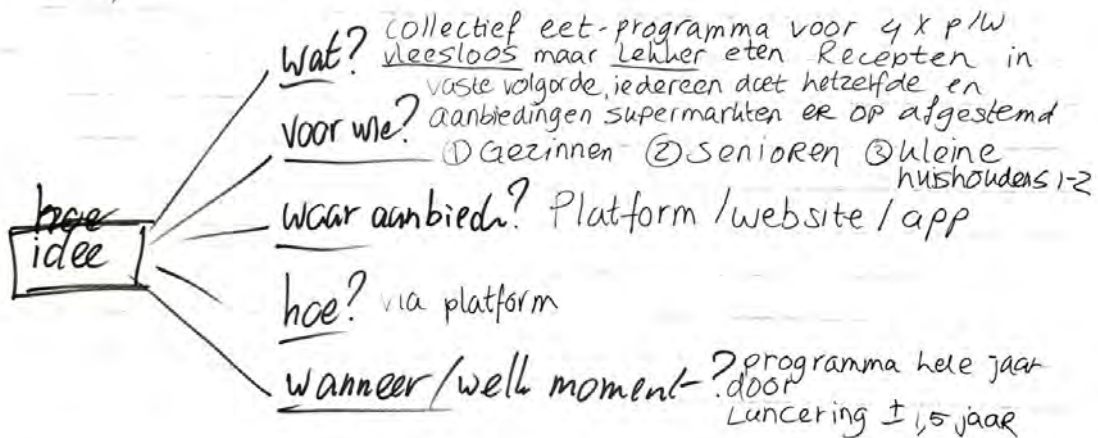 wat? collectief eet-programma voor 4 x p/w
vleesloos maar lekker eten Recepten in
vaste volgorde, iedereen doet hetzelfde en
voor wie? aanbiedingen supermarkten er op afgestemd
① Gezinnen ② Senioren ③ kleine
huishoudens 1-2
waar aanbied? Platform / website / app
hoe
idee
hoe? via platform
wanneer / welk moment? programma hele jaar
door
Lancering ± 1,5 jaar